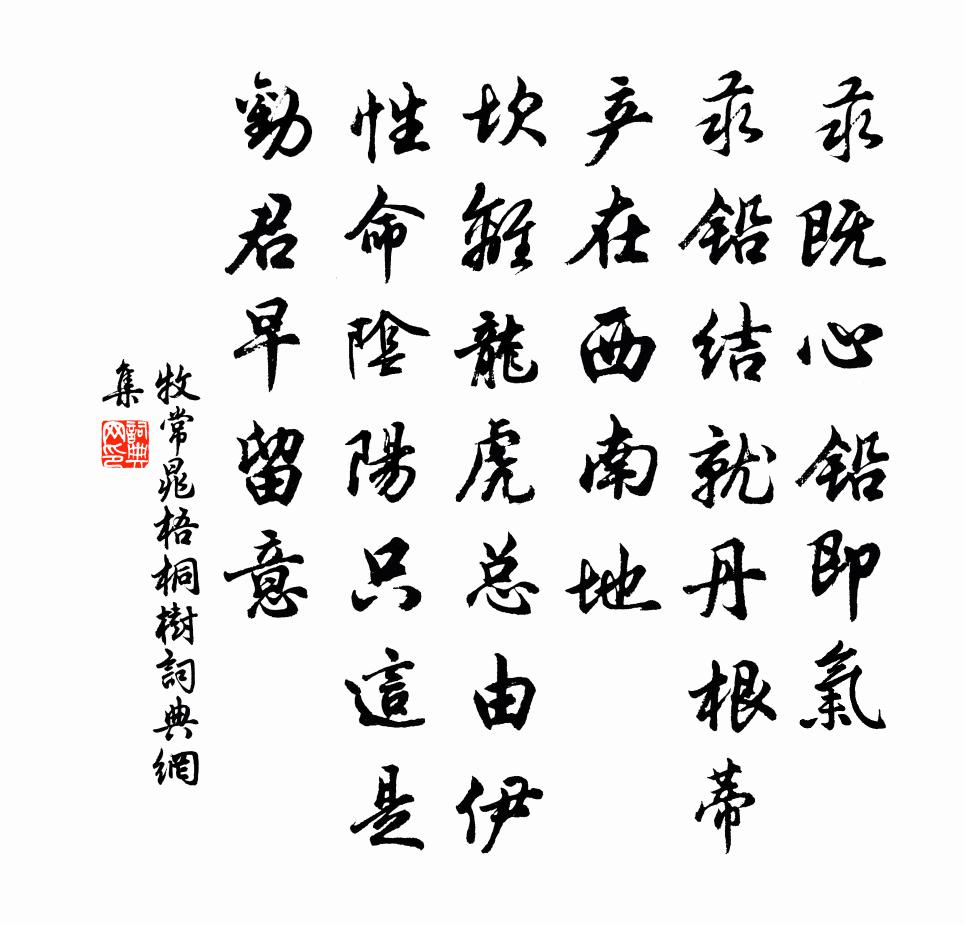 汞既心鉛即氣
汞鉛結就丹根蒂
产在西南地
坎離龍虎总由伊
性命陰陽只這是
勸君早留意
牧常晁梧桐樹詞典網
集
詞典网印